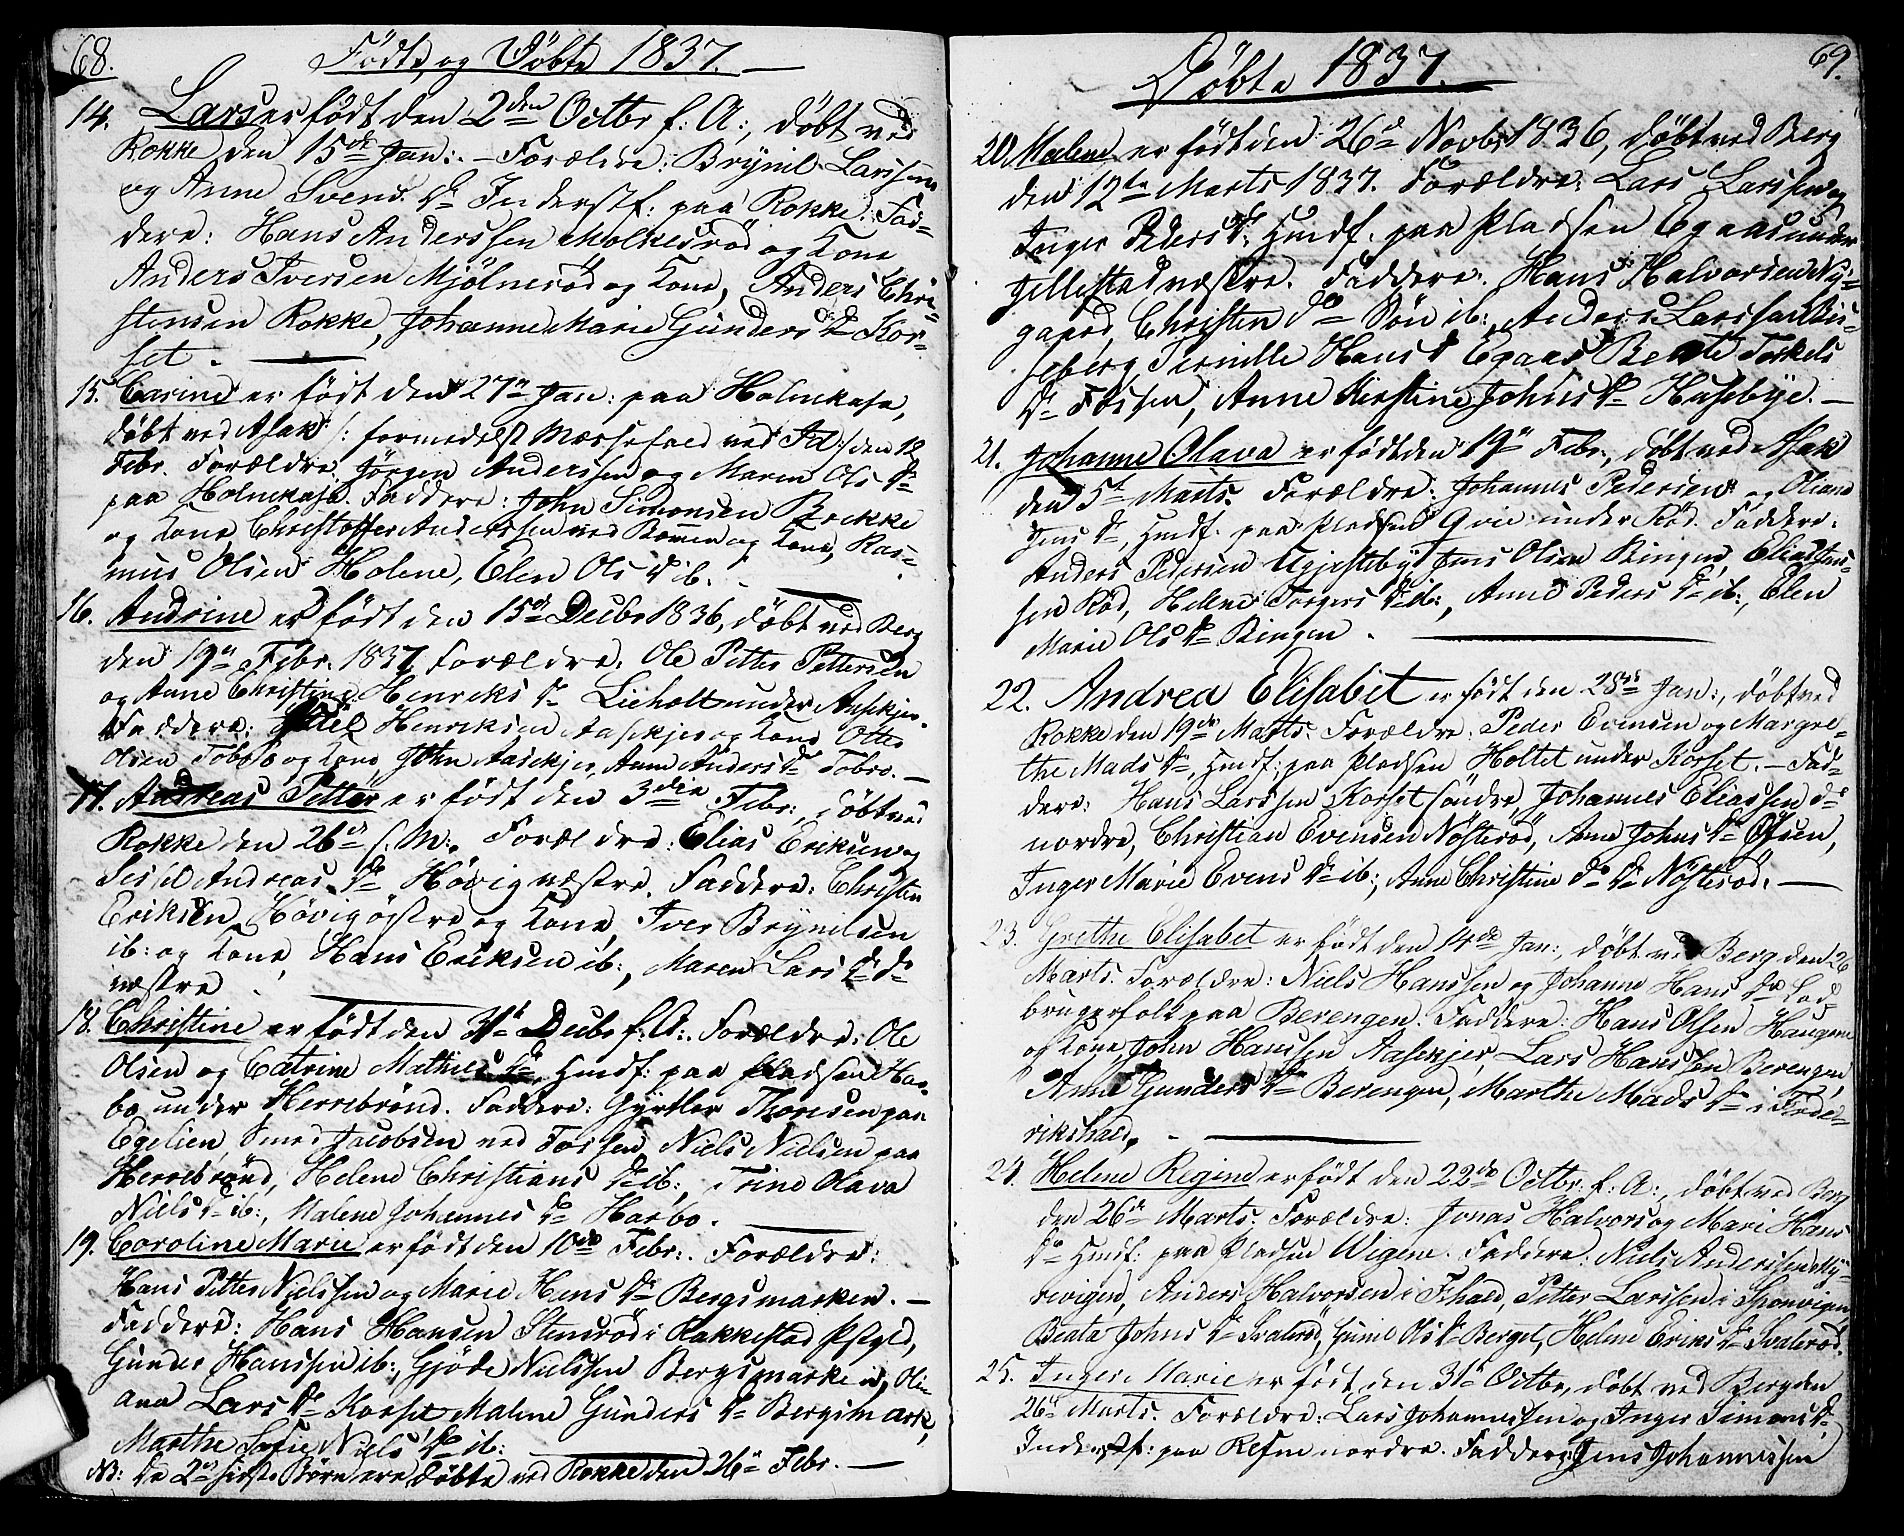 68.
Födte og Döbte 1837.
14. Lars er födt den 2den Octbr f: A:, döbt ved
Rokke den 15de Jan:. – Forældre: Brynil Larssen
og Anne Svens Dr Inderstf: paa Rokke. Fad-
dere: Hans Anderssen Molkesröd og Kone
Anders Iversen Mjölnesröd og Kone, Anders Chri-
stensen Rokke, Johanne Marie Gunders Dr Kor-
set.
15. Carine er födt den 27n Jan: paa Holmekasa,
döbt ved Asak /: formedelst Messefald ved Id :/ den 12
Febr. Forældre Jörgen Anderssen og Maren Ols Dr
paa Holmekasa. Faddere: John Simonsen Brekke
og Kone, Christoffer Anderssen ved Bommen og Kone, Ras-
mus Olsen Holene, Elen Ols Dr ib.
16. Andrine er födt den 15de Decbr 1836, döbt ved Berg
den 19n Febr. 1837. Forældre: Ole Petter Pettersen
og Anne Christine Henriks Dr Lieholt under Aasekjer.
Faddere: Henriksen Aasekjer og Kone Otter
Olsen Tobro og Kone John Aasekjer, Anne Anders Dr Tobro. –
17. Andreas Petter er födt den 3die Febr:, döbt ved
Rokke den 26de s. M:. Forældre: Elias Eriksen og
Sesil Andreas Dr Hövig næstre. Faddere: Christen
Eriksen Hövig östre og Kone, Iver Brynilsen
ib: og Kone, Hans Eriksen ib:, Maren Lars Dr do
næstre.
18. Christine er födt den 31te Decbr f: A:. Forældre: Ole
Olsen og Catrine Mathies Dr, Huusf: paa Pladsen Has-
bo under Herrebrönd. Faddere: Gyrtler Thoresen paa
Egelien, Smed Jacobsen ved Fossen, Niels Nielsen paa
Herrebrönd, Helene Christians Dr ib:, Trine Olava
Niels Dr ib:, Malene Johannes Dr Hasbo.
19. Caroline Marie er födt den 10de Febr:. Forældre:
Hans Petter Nielssen og Marie Hans Dr Bergsmarken. –
Faddere: Hans Hansen Stensröd i Rakkestad Pstgld,
Gunder Hanssen ib:, Gjöde Nielssen Bergsmarken, Oli-
ana Lars Dr Korset, Malene Gunders Dr Bergsmark,
Marthe Sofie Niels Dr ib:
NB: De 2de sidste Börn ere döbte ved Rokke den 26n Febr. –
69.
Döbte 1837.
20. Malene er födt den 26de Novbr 1836, döbt ved Berg
den 12te Marts 1837. Forældre: Lars Larssen og
Inger Peders Dr: Huusf. paa Pladsen Egaas under
Gjellestad næstre. Faddere: Hans Halvorsen Ny-
gaard, Christen do Sön ib:, Anders Larssen Bus-
seberg, Pernille Hans Dr Egaas, Beate Torkels
Dr Fossen, Anne Kirstine Johns Dr Husebye. –
21. Johanne Olava er födt den 19n Febr:, döbt ved Asak
den 5te Marts. Forældre: Johannes Pedersen og Oliane
Jens Dr, Huusf: paa Pladsen Qvie under Röd. Faddere:
Anders Pedersen Ugjesteby, Jens Olsen Bingen, Elias Jens-
sen Röd, Hellene Torgers Dr ib:, Anne Peders Dr ib:, Elen
Marie Ols Dr Bingen.
22. Andrea Elisabet er födt den 28de Jan:, döbt ved
Rokke den 19de Marts. Forældre: Peder Evensen og Margre-
the Mads Dr, Huusf: paa Pladsen Holtet under Korset. – Fad-
dere: Hans Larssen Korset söndre, Johannes Eliassen do
nordre, Christian Evensen Nösteröd, Anne Johns Dr Olsen,
Inger Marie Evens Dr ib:, Anne Christine do Dr Nösteröd. –
23. Grethe Elisabet er födt den 14de Jan:, döbt ved Berg den 26
Marts. Forældre: Niels Hanssen og Johanne Hans Dr Lod-
brugerfolk paa Berengen. Faddere: Hans Olsen Haugene
og Kone, John Hanssen Aasekjer, Lars Hanssen Berengen,
Anne Gunders Dr Berengen, Marthe Mads Dr i Frede-
rikshald.
24. Helene Regine er födt den 22de Octbr. f: A:, döbt ved Berg
den 26de Marts. Forældre: Jonas Halvors og Mari Hans
Dr Huusf: paa Pladsen Wigene. Faddere: Niels Anderssen My-
revigen, Anders Halvorsen i Frhald, Petter Larssen i Sponvigen,
Beata Johns Dr Svaleröd, Gunil Ols Dr Berget, Helene Eriks Dr Svaleröd.
25. Inger Marie er födt den 31te Octbr, döbt ved Berg den
26de Marts. Forældre: Lars Johannessen og Inger Simons Dr,
Inderstf: paa Refne nordre. Faddere: Jens Johannessen